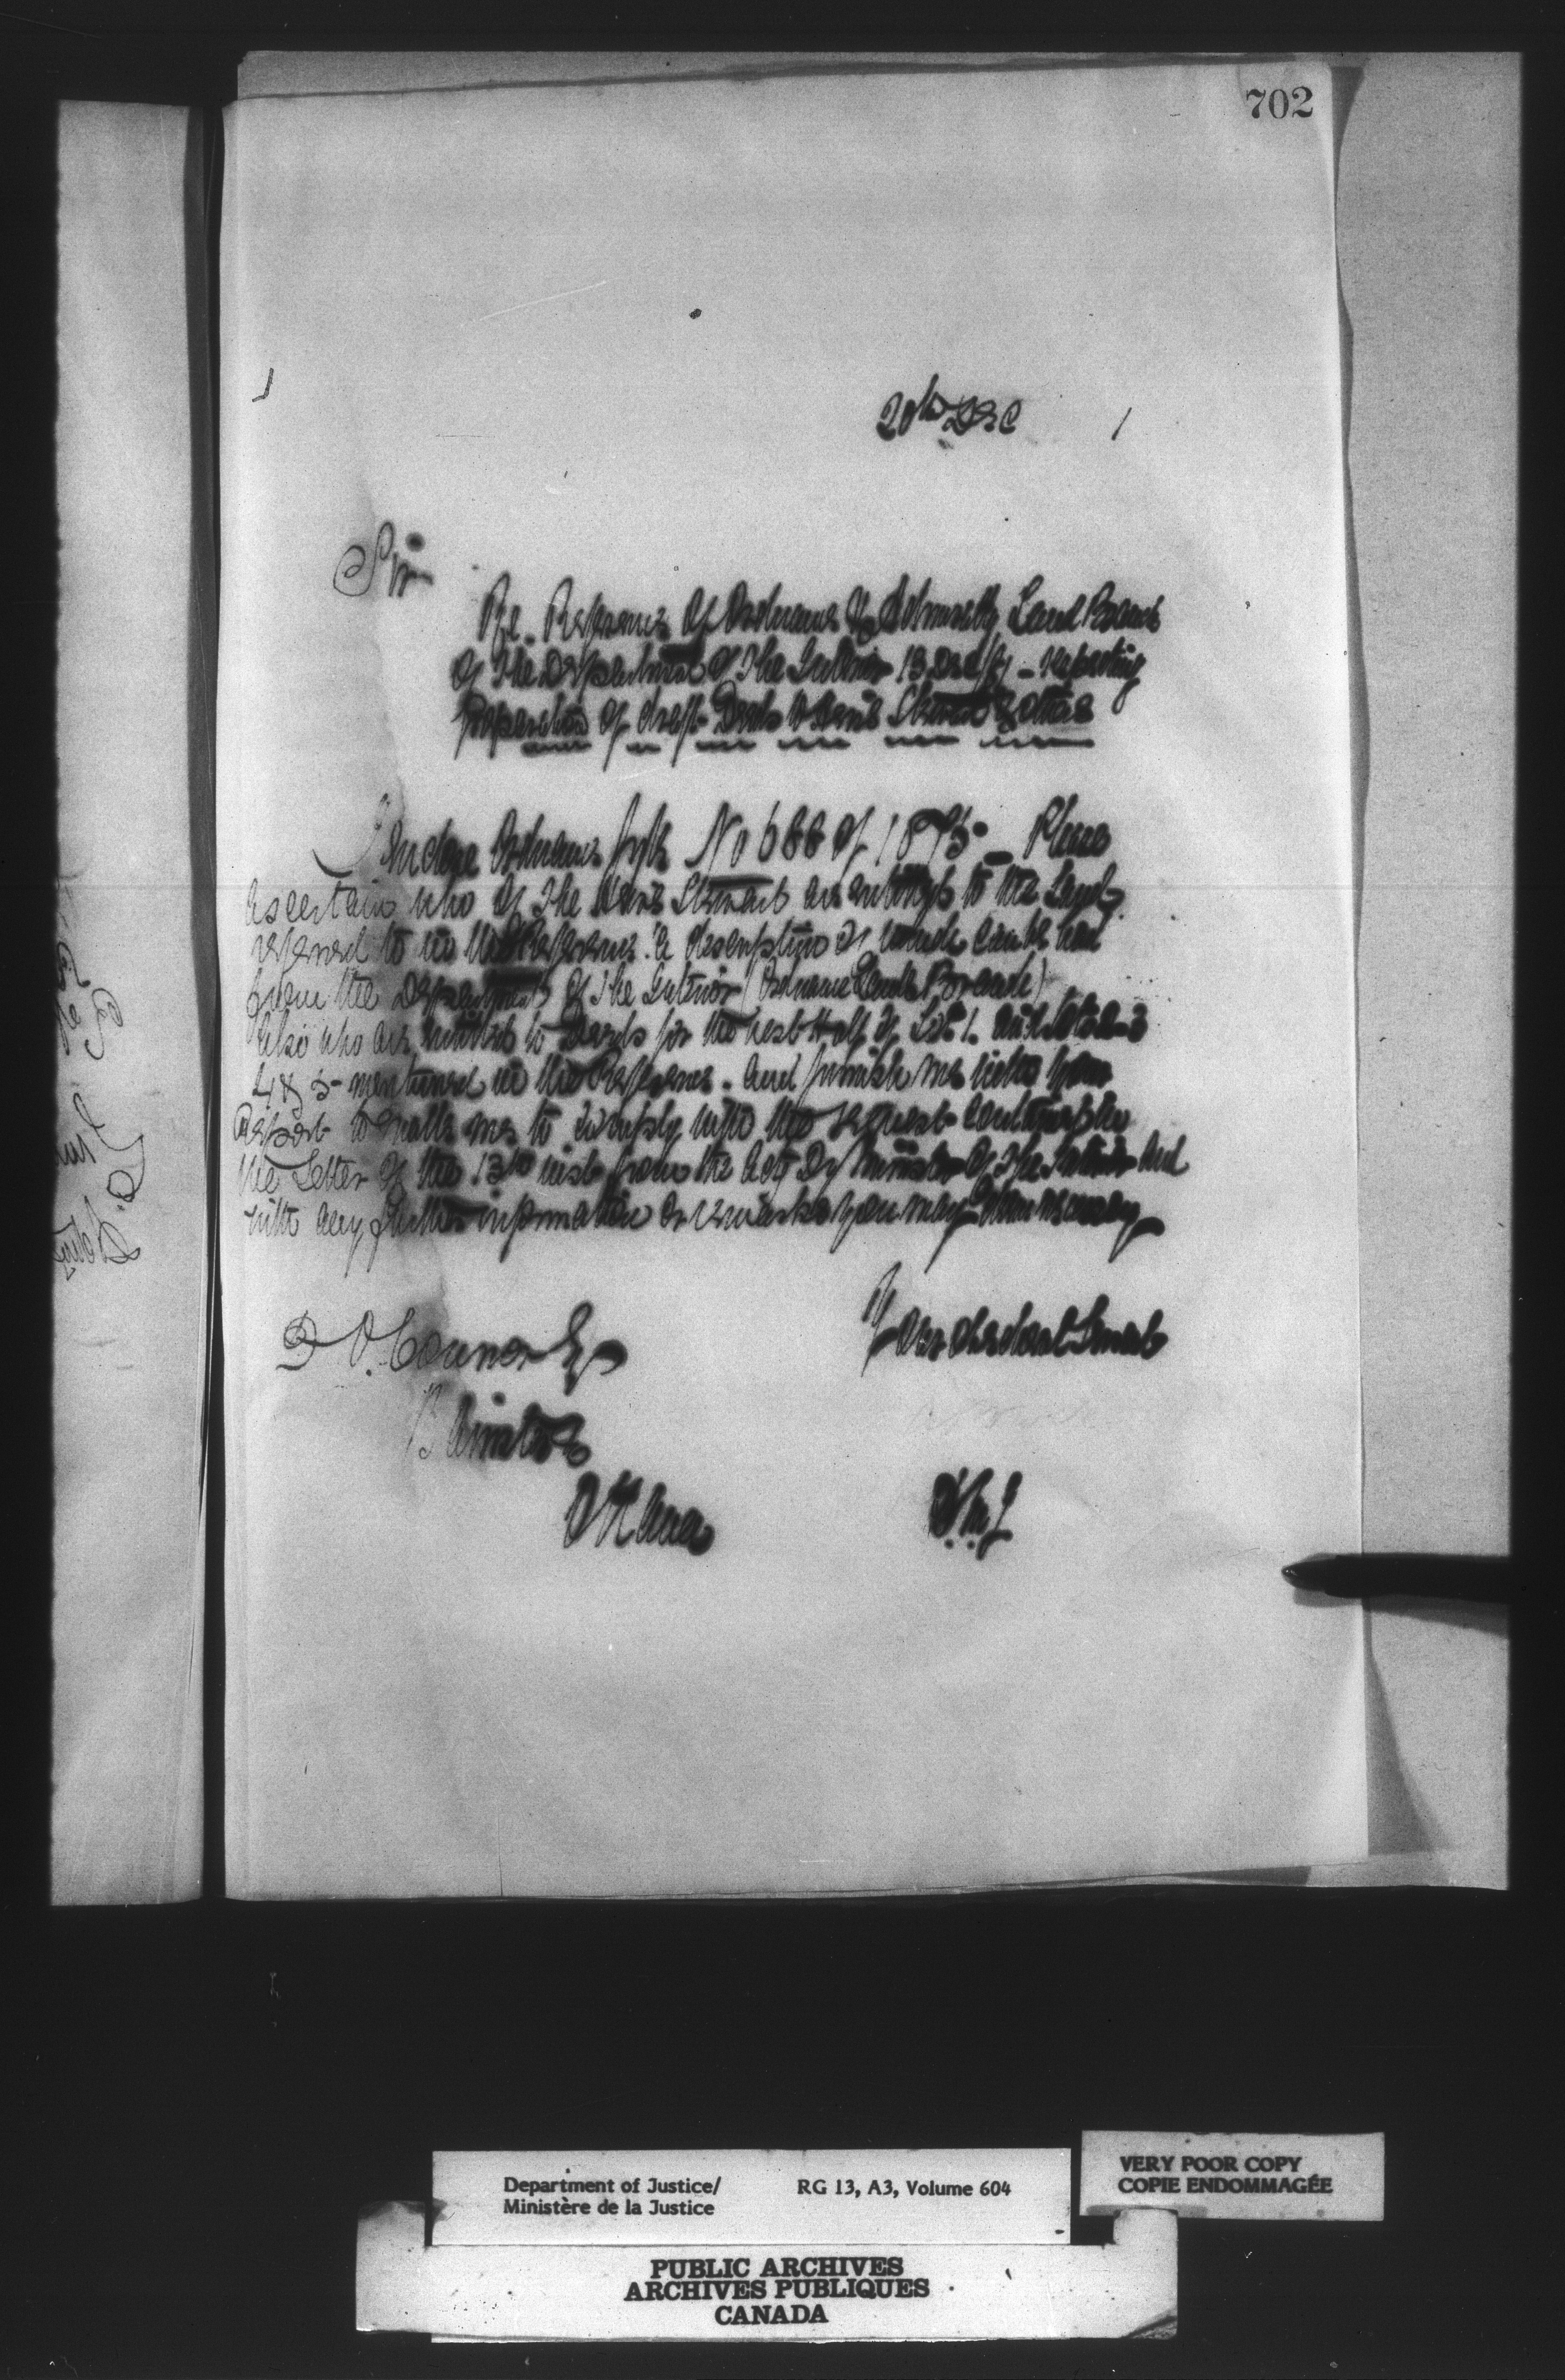 702
20th Dec
Sir
Re. Reference of Ordnance & Admiralty Land Branch
of the Department of the Interior 13 Dec - respecting
preparation of draft Deeds Stewart & others
Ordnance No 688 of 1875 - Please
ascertain who of the Stewart are entitled to the Land
referred to in the Reference. A description of which can be had
from the Department of the Interior (Ordnance Lands Branch)
Also who are entitled to Deeds for the West Half of Lot 1. and Lots 2-3
4 & 5 - mentioned in the Reference. And furnish me with your
Report to enable me to comply with the request contained in
the Letter of the 13th inst from the Actg Dy Minister of the Interior and
with any further information or remarks you may deem necessary
Your obedient Servant
D O'Connor Esq
Barrister
Ottawa
Department of Justice/ RG 13, A3, Volume 604
Ministère de la Justice
VERY POOR COPY
COPIE ENDOMMAGÉE
PUBLIC ARCHIVES
ARCHIVES PUBLIQUES
CANADA